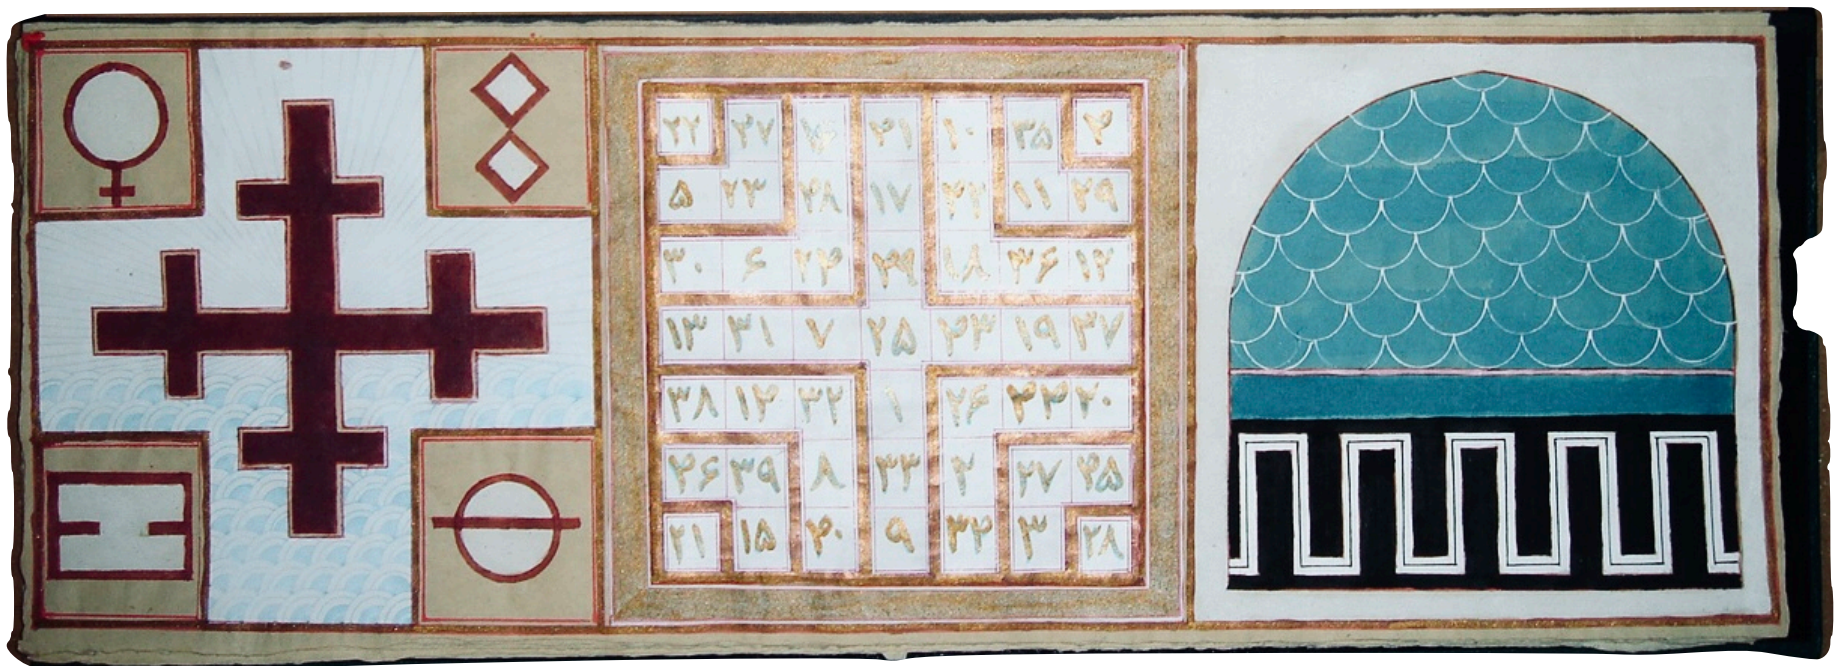 ۲۲ ۴۷ ۱۶ ۴۱ ۱۰ ۳۵ ۴
۵ ۲۳ ۴۸ ۱۷ ۴۲ ۱۱ ۲۹
۳۰ ۶ ۲۴ ۴۹ ۱۸ ۳۶ ۱۲
۱۳ ۳۱ ۷ ۲۵ ۴۳ ۱۹ ۳۷
۳۸ ۱۴ ۳۲ ۱ ۲۶ ۴۴ ۲۰
۴۶ ۳۹ ۸ ۳۳ ۲ ۲۷ ۴۵
۲۱ ۱۵ ۴۰ ۹ ۳۴ ۳ ۲۸